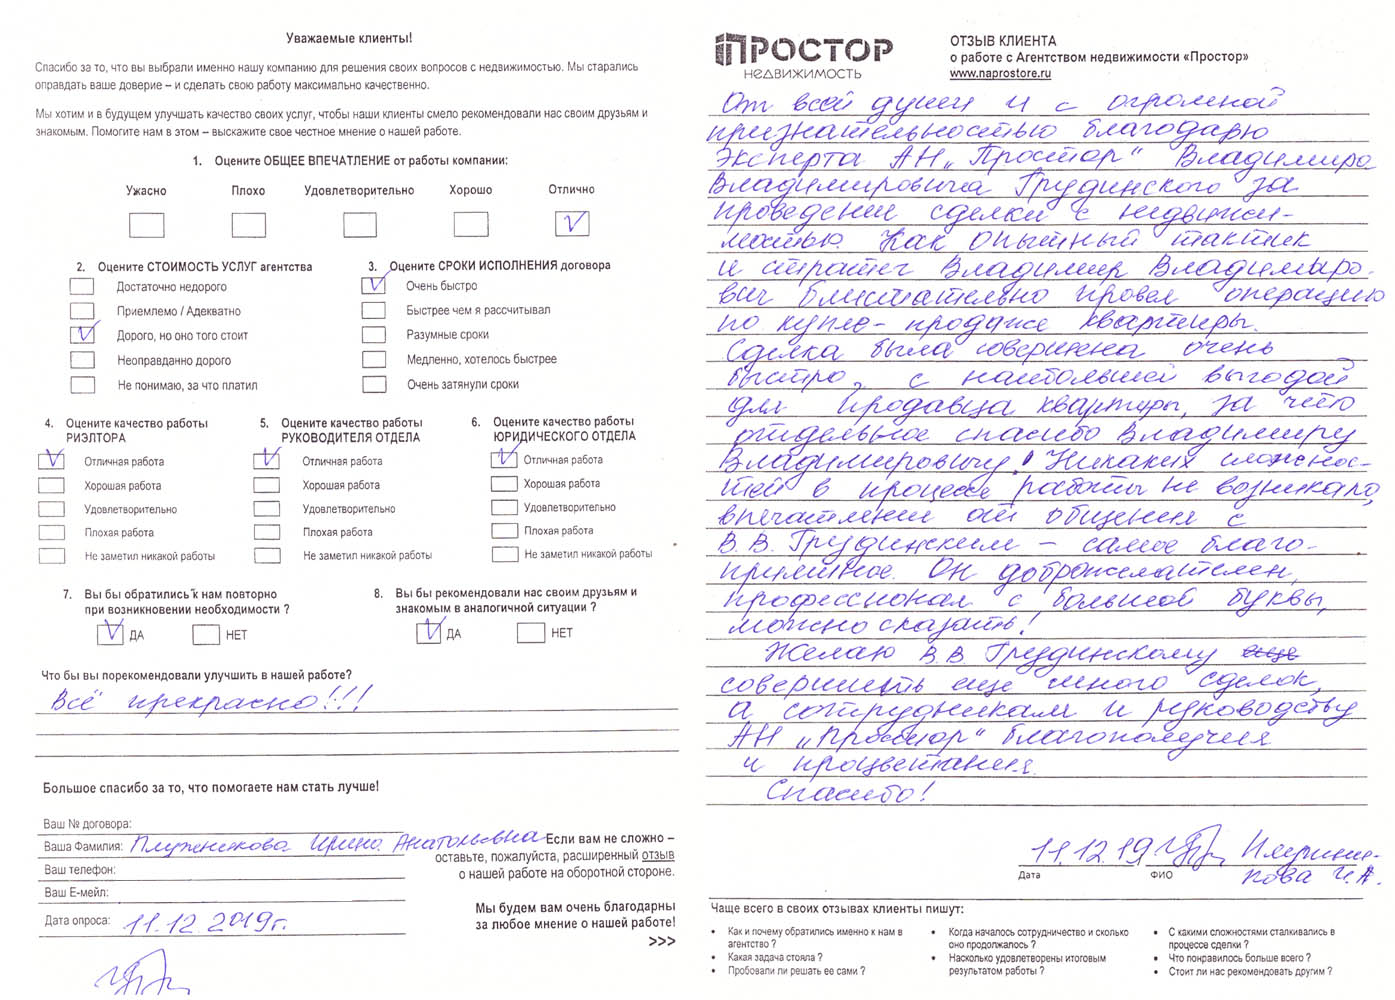 Уважаемые клиенты!
Спасибо за то, что вы выбрали именно нашу компанию для решения своих вопросов с недвижимостью. Мы старались
оправдать ваше доверие – и сделать свою работу максимально качественно.
Мы хотим и в будущем улучшать качество своих услуг, чтобы наши клиенты смело рекомендовали нас своим друзьям и
знакомым. Помогите нам в этом – выскажите свое честное мнение о нашей работе.
1. Оцените ОБЩЕЕ ВПЕЧАТЛЕНИЕ от работы компании:
Ужасно Плохо Удовлетворительно Хорошо Отлично
2. Оцените СТОИМОСТЬ УСЛУГ агентства
Достаточно недорого
Приемлемо / Адекватно
Дорого, но оно того стоит
Неоправданно дорого
Не понимаю, за что платил
3. Оцените СРОКИ ИСПОЛНЕНИЯ договора
Очень быстро
Быстрее чем я рассчитывал
Разумные сроки
Медленно, хотелось быстрее
Очень затянули сроки
4. Оцените качество работы
РИЭЛТОРА
Отличная работа
Хорошая работа
Удовлетворительно
Плохая работа
Не заметил никакой работы
5. Оцените качество работы
РУКОВОДИТЕЛЯ ОТДЕЛА
Отличная работа
Хорошая работа
Удовлетворительно
Плохая работа
Не заметил никакой работы
6. Оцените качество работы
ЮРИДИЧЕСКОГО ОТДЕЛА
Отличная работа
Хорошая работа
Удовлетворительно
Плохая работа
Не заметил никакой работы
7. Вы бы обратились к нам повторно
при возникновении необходимости ?
ДА НЕТ
8. Вы бы рекомендовали нас своим друзьям и
знакомым в аналогичной ситуации ?
ДА НЕТ
Что бы вы порекомендовали улучшить в нашей работе?
Всё прекрасно!!!
Большое спасибо за то, что помогаете нам стать лучше!
Ваш № договора:
Ваша Фамилия: Ирина Анатольевна
Ваш телефон:
Ваш Е-мейл:
Дата опроса: 11.12.2019г.
Если вам не сложно –
оставьте, пожалуйста, расширенный отзыв
о нашей работе на оборотной стороне.
Мы будем вам очень благодарны
за любое мнение о нашей работе!
>>>
ПРОСТОР
НЕДВИЖИМОСТЬ
ОТЗЫВ КЛИЕНТА
о работе с Агентством недвижимости «Простор»
www.naprostore.ru
От всей души и с огромной
признательностью благодарю
Эксперта АН „Простор" Владимира
Владимировича Грудинского за
проведение сделки с недвижи-
мостью. Как опытный тактик
и стратег Владимир Владимиро-
вич блистательно провел операцию
по купле-продаже квартиры.
Сделка была совершена очень
быстро, с наибольшей выгодой
для продавца квартиры, за что
отдельное спасибо Владимиру
Владимировичу! Никаких сложнос-
тей в процессе работы не возникало,
впечатление от общения с
В.В. Грудинским – самое благо-
приятное. Он доброжелателен,
профессионал с большой буквы,
можно сказать!
Желаю В.В. Грудинскому еще
совершить еще много сделок,
а сотрудникам и руководству
АН „Простор" благополучия
и процветания.
Спасибо!
11.12.19 И.А.
Дата ФИО
Чаще всего в своих отзывах клиенты пишут:
• Как и почему обратились именно к нам в
агентство ?
• Какая задача стояла ?
• Пробовали ли решать ее сами ?
• Когда началось сотрудничество и сколько
оно продолжалось ?
• Насколько удовлетворены итоговым
результатом работы ?
• С какими сложностями сталкивались в
процессе сделки ?
• Что понравилось больше всего ?
• Стоит ли нас рекомендовать другим ?